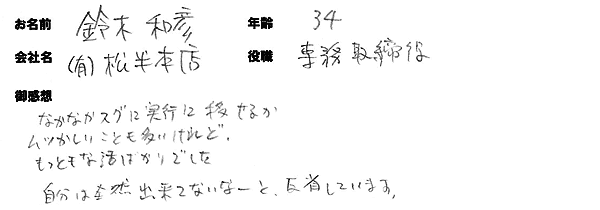 お名前 鈴木 和彦 年齢 34
会社名 (有)松半本店 役職 専務取締役
御感想
なかなかスグに実行に移せるか
ムツかしいことも多いけれど、
もっともな話ばかりでした
自分は全然出来てないなーと、反省しています。